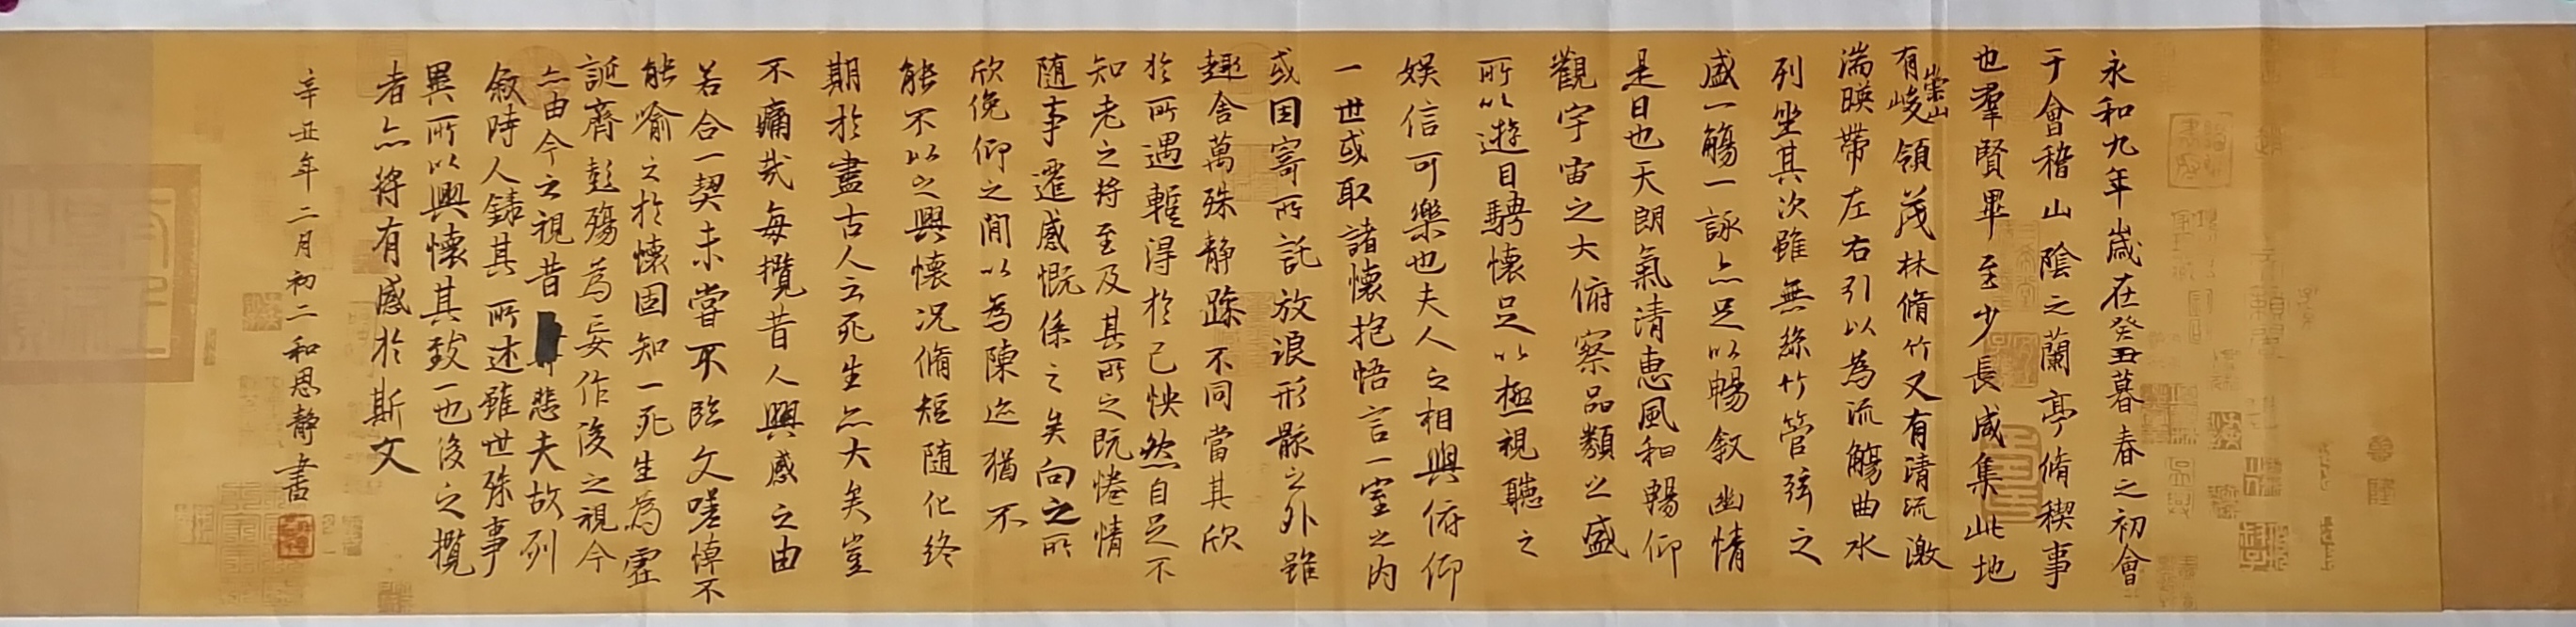 永和九年歲在癸丑暮春之初會
于會稽山陰之蘭亭脩稧事
也羣賢畢至少長咸集此地
有崇山峻領茂林脩竹又有清流激
湍暎帶左右引以為流觴曲水
列坐其次雖無絲竹管弦之
盛一觴一詠亦足以暢敘幽情
是日也天朗氣清惠風和暢仰
觀宇宙之大俯察品類之盛
所以遊目騁懷足以極視聽之
娛信可樂也夫人之相與俯仰
一世或取諸懷抱悟言一室之內
或因寄所託放浪形骸之外雖
趣舍萬殊靜躁不同當其欣
於所遇暫得於己怏然自足不
知老之將至及其所之既惓情
隨事遷感慨係之矣向之所
欣俛仰之間以為陳迹猶不
能不以之興懷況脩短隨化終
期於盡古人云死生亦大矣豈
不痛哉每攬昔人興感之由
若合一契未嘗不臨文嗟悼不
能喻之於懷固知一死生為虛
誕齊彭殤為妄作後之視今
亦由今之視昔悲夫故列
敘時人錄其所述雖世殊事
異所以興懷其致一也後之攬
者亦將有感於斯文
辛丑年二月初二和恩靜書